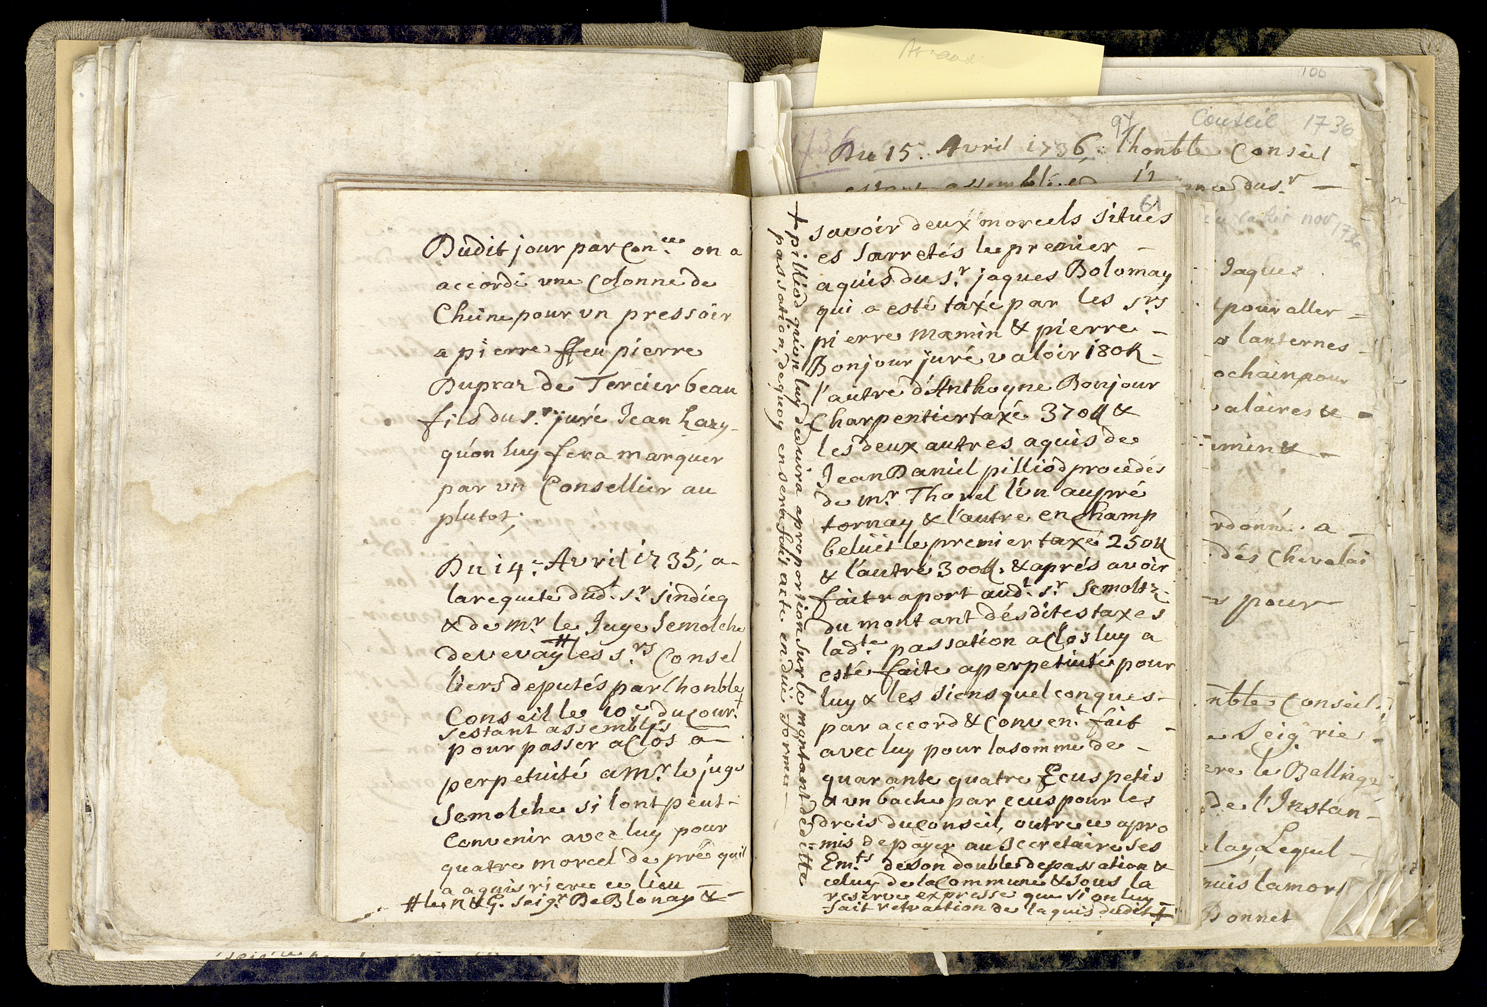 Dudit jour par Con.ce on a
accordé une Colonne de
Chêne pour un pressoir
a pierre ffeu pierre
Dupraz de Tercier beau
fils du S.r juré Jean
qu'on luy fera marquer
par un Consellier au
plutot;
Du 14.e Avril 1735, a
la requete dud.t S.r sindicq
& de Mr le Juge Semolche
de vevay # les S.rs Consel
liers deputés par l'honble
Conseil le 10.e du Cour.t
s'estant assemblés
pour passer a Clos a
perpetuité a Mr. le juge
Semolche si l'ont peut
Convenir avec luy pour
quatre morcel de pré quil
a aquis riere ce lieu
# le n & G. seigr De Blonay &
61
savoir deux morcels situés
es Sarretés le premier
aquis du S.r jaques Bolomay
qui a esté taxé par les S.rs
pierre mamin & pierre
Bonjour juré valoir 180 ft
l'autre d'Anthoyne Bonjour
Charpentier taxé 370 ft &
les deux autres aquis de
Jean Daniel pilliod procedés
de Mr. Thorel l'un au pré
tornay & l'autre en Champ
beluët le premier taxé 250 ft
& l'autre 300 ft. & aprés avoir
fait raport aud.t S.r Semol.
du montant désdites taxes
lad.te passation a Clos luy a
esté faite a perpetuité pour
luy & les siens quelconques
par accord & Conven.t fait
avec luy pour la somme de
quarante quatre Ecus petis
a un bache par ecus pour les
drois du Conseil, outre ce a pro
mis de payer au Secretaire ses
Em.ts de son double de passation &
celuy de la Commune & sous la
reserve expresse que si on luy
fait retraction de laquis dudit +
+ pilliod qu'on luy deduira a proportion sur le montant de ditte
passation, de quoy en sera fait acte en duë forme
Arnaux
100
97
Conseil 1736
Du 15. Avril 1736. l'honble Conseil
Jaques
pour aller
lanternes
ochain pour
alaires &
rdonné. a
dés Chevalai
pour
nble Conseil
Seig.rie
ere le Ballings
de l'Instan
lay, Lequel
puis la mort
Bonnet